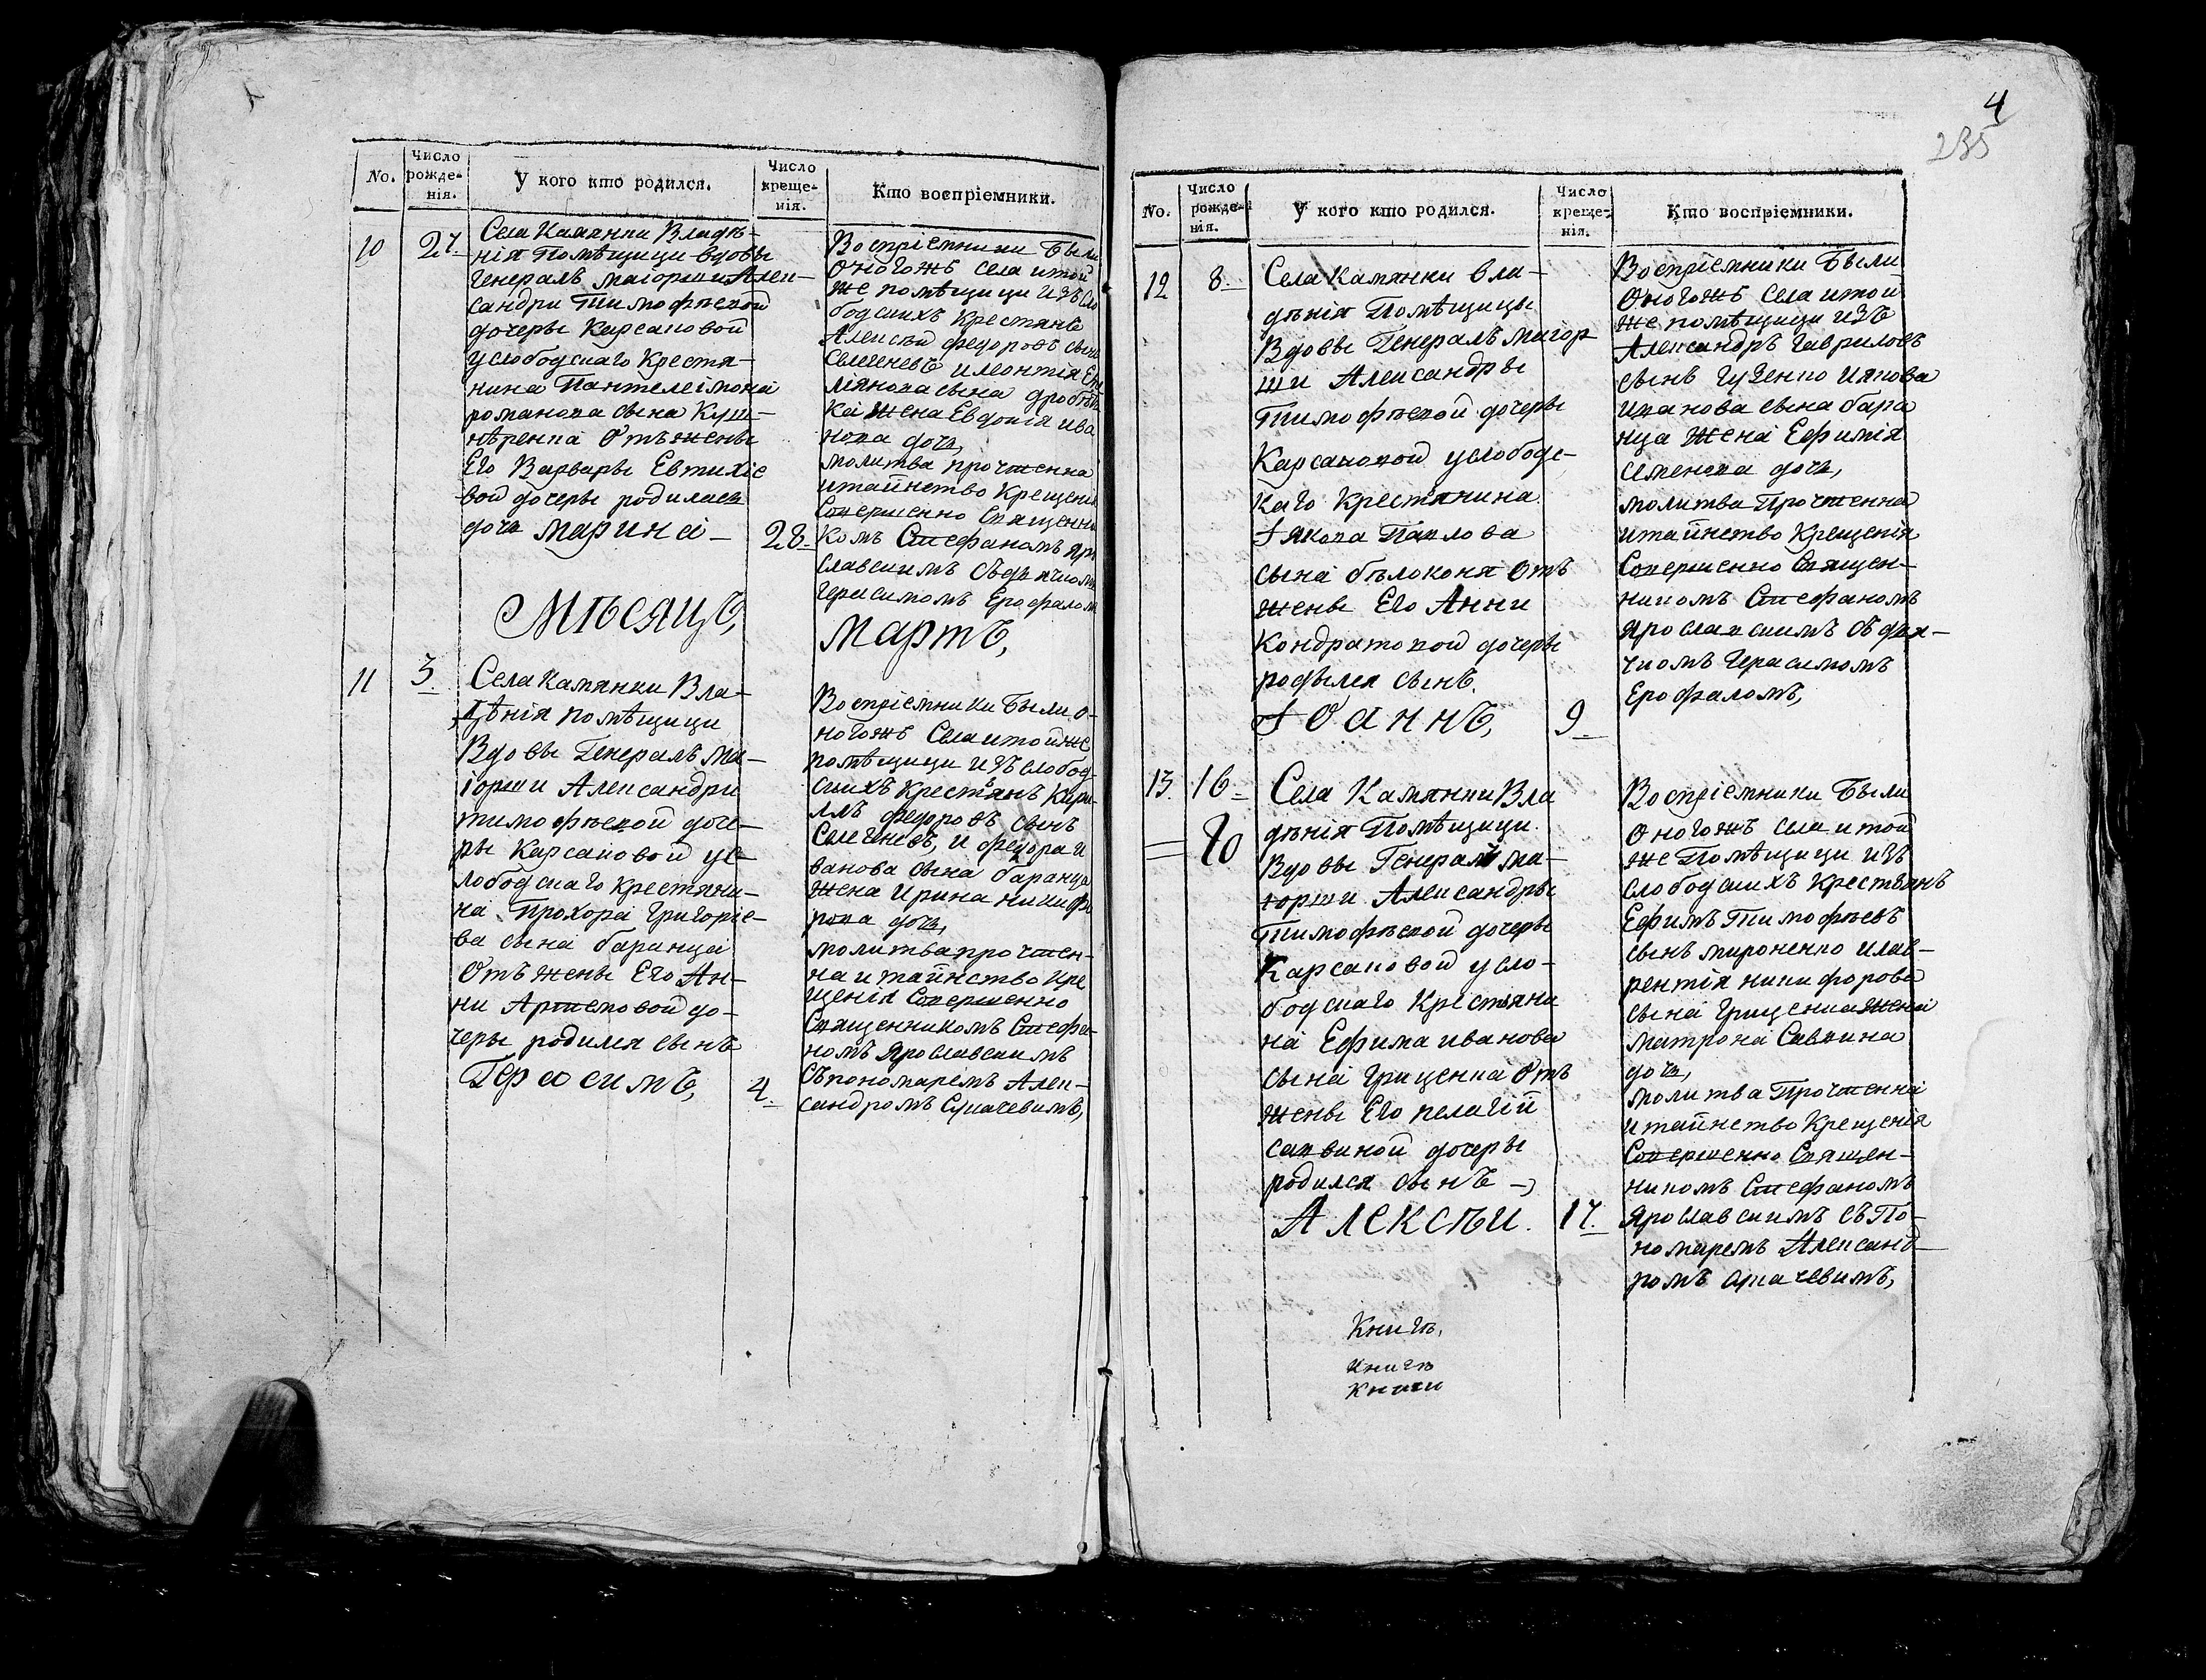 No.
Число рожде-нія.
У кого кто родился.
Число креще-нія.
Кто воспріемники.
10
27.
Села Камянки Владѣ-
нія Помѣщици вдовы
Генералъ маіорши Алек-
сандри Тимофѣевой
дочеры Карсаковой
услободскаго Крестя-
нина Пантелеімона
романова сына Куш-
нѣренка Отъ жены
Его Варвары Евтихіе
вой дочеры родилась
дочь Марина –
28.
Воспріемники Были
Оногожъ села итой
же помѣщици Изъ сло
бодскихъ Крестянъ
Алексѣй федоровъ сынъ
Селегеневъ илеонтія
ліянова сына
жена Евдокія ива
нова дочь,
молитва прочтенна
итаинство Крещенія
Совершенно Священни
комъ Стефаномъ Яро
славскимъ съдьячкомъ
Герасимомъ Ерофаломъ
Мѣсяцъ,
Мартъ,
11
3.
Села Камянки Вла-
дѣнія помѣщици
Вдовы Генералъ ма-
іорши Александри
тимофѣевой доче-
ры Карсаковой ус-
лободскаго крестяни-
на Прохора Григоріе-
ва сына баранца
Отъ жены Его Ан-
ни Артемовой до-
черы родился сынъ
Герасимъ,
4.
Воспріемники Были о-
ногожъ Села итойже
помѣщици изъ слобод-
скихъ Крестянъ Кири-
лъ федоровъ сынъ
Селегеневъ, и федора и
ванова сына баранца
жена Ирина никифо
рова дочь,
молитва прочтен-
на итаинство кре
щенія Совершенно
Священникомъ Стефа-
номъ Ярославскимъ
съпономаремъ Алек-
сандромъ Сукачевимъ,
4
235
No.
Число рожде-нія.
У кого кто родился.
Число креще-нія.
Кто воспріемники.
12
8.
Села Камянки вла-
дѣнія Помѣщицы
Вдовы Генералъ маіор
ши Александры
Тимофѣевой дочеры
Карсаковой услободс-
каго Крестянина
Іякова Павлова
сына бѣлоконя Отъ
жены Его Анни
Кондратовой дочеры
родылся сынъ.
Іоаннъ,
9.
Воспріемники Были
Оногожъ Села итой
же помѣщици изъ
Александръ Гавриловъ
сынъ Гузенко иякова
иванова сына бара
нца жена Ефимія
Семенова дочь,
молитва Прочтенна
итаинство Крещенія
Совершенно Священ-
никомъ Стефаномъ
Ярославскимъ съ дья-
чкомъ Герасимомъ
Ерофаломъ,
13.
16
Села Камянки Вла
дѣнія Помѣщици
Вдовы Генералъ ма-
іорши Александры
Тимофѣевой дочеры
Карсаковой усло-
бодскаго Крестьяни
на Ефима иванова
сына Грищенка Отъ
жены Его пелагіи
саввиной дочеры
родился сынъ
Алексѣи.
17.
Воспріемники Были
Оногожъ села итой
же Помѣщици изъ
слободскихъ Крестьянъ
Ефимъ Тимофѣевъ
сынъ мироненко илав-
рентія никифорова
сына Грищенка жена
матрона Саввина
дочь,
молитва Прочтенна
итаинство Крещенія
Совершенно Священ-
никомъ Стефаномъ
Ярославскимъ съ По-
номаремъ Александ-
ромъ Сукачевимъ,
Книгѣ,
книгѣ
книги